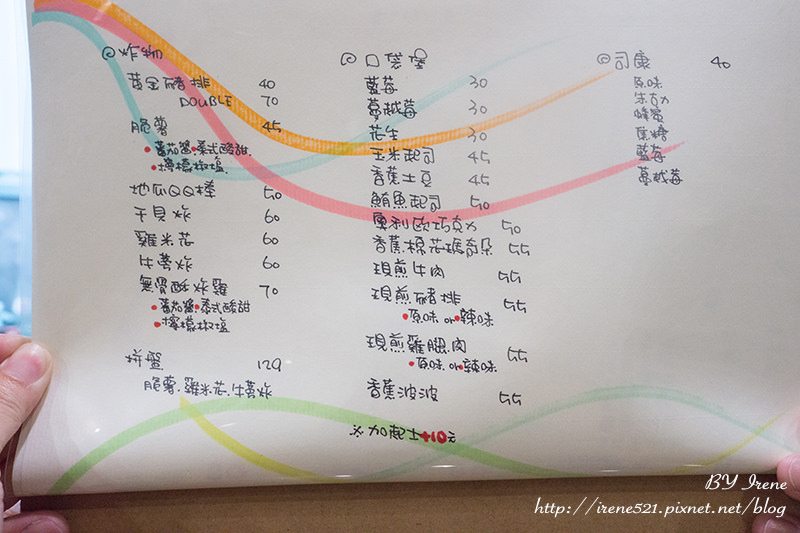 ◎炸物
黃金豬排 40
DOUBLE 70
脆薯 45
•蕃茄醬•泰式酸甜
•檸檬椒塩
地瓜QQ棒 50
干貝炸 60
雞米花 60
牛蒡炸 60
無骨酥炸雞 70
•蕃茄醬•泰式酸甜
•檸檬椒塩
拼盤 129
脆薯.雞米花.牛蒡炸
◎口袋堡
藍莓 30
蔓越莓 30
花生 30
玉米起司 45
香蕉土豆 45
鮪魚起司 50
奧利歐巧克力 50
香蕉棉花瑪奇朵 55
現煎牛肉 55
現煎豬排 55
•原味 or •辣味
現煎雞腿肉 55
•原味 or •辣味
香蕉波波 55
※加起士+10元
◎司康 40
原味
朱克力
蜂蜜
焦糖
藍莓
蔓越莓
BY Irene
http://irene521.pixnet.net/blog